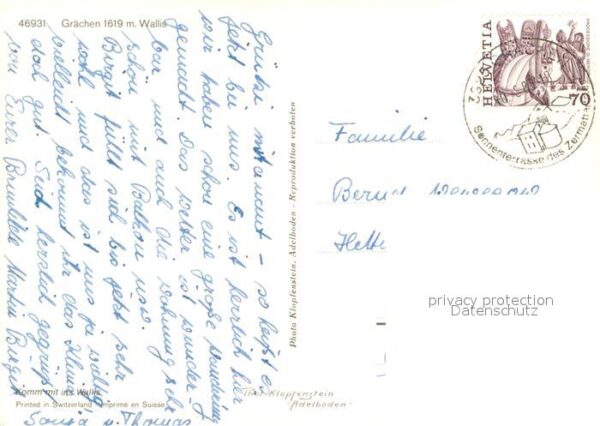 46931 Grächen 1619 m. Wallis
Grüezi mitanant – so heißt es
jetzt bei uns. Es ist herrlich hier
wir haben schon eine große Wanderung
gemacht. Das Wetter ist wunder-
bar und auch die Wohnung sehr
schön mit Balkon usw.
Birgit fühlt sich bis jetzt sehr
wohl und das ist uns ja wichtig
vielleicht bekommt ihr das Klima
auch gut. Seid herzlich gegrüßt
von Eurer Martin Birgit
Sonja u. Thomas
Komm mit ins Wallis
Printed in Switzerland - Imprimé en Suisse
Photo Klopfenstein, Adelboden - Reproduktion verboten
Thür Klopfenstein
Adelboden
HELVETIA
70
Sonnenterrasse des Zermatt
Familie
Bernd
privacy protection
Datenschutz